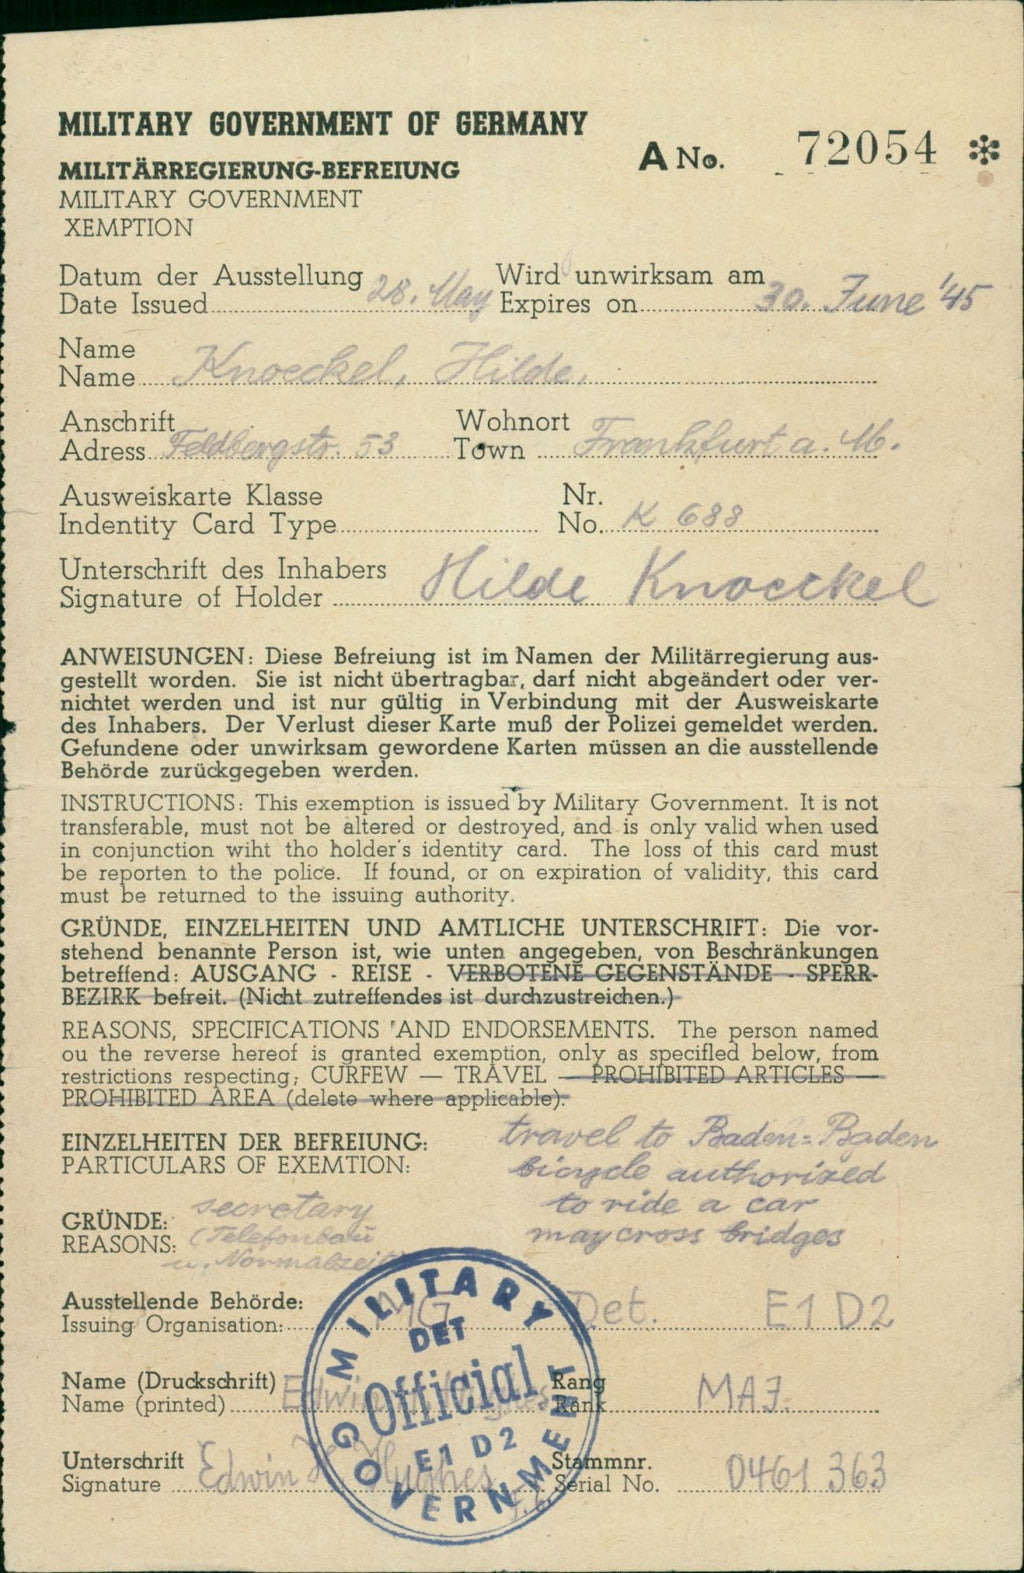 MILITARY GOVERNMENT OF GERMANY
A No. 72054 *
MILITÄRREGIERUNG-BEFREIUNG
MILITARY GOVERNMENT
XEMPTION
Datum der Ausstellung Wird unwirksam am
Date Issued 28. May Expires on 30. June '45
Name
Name Knoeckel, Hilde.
Anschrift Wohnort
Adress Feldbergstr. 53 Town Frankfurt a. M.
Ausweiskarte Klasse Nr.
Indentity Card Type No. K 688
Unterschrift des Inhabers
Signature of Holder Hilde Knoeckel
ANWEISUNGEN: Diese Befreiung ist im Namen der Militärregierung aus-
gestellt worden. Sie ist nicht übertragbar, darf nicht abgeändert oder ver-
nichtet werden und ist nur gültig in Verbindung mit der Ausweiskarte
des Inhabers. Der Verlust dieser Karte muß der Polizei gemeldet werden.
Gefundene oder unwirksam gewordene Karten müssen an die ausstellende
Behörde zurückgegeben werden.
INSTRUCTIONS: This exemption is issued by Military Government. It is not
transferable, must not be altered or destroyed, and is only valid when used
in conjunction wiht tho holder's identity card. The loss of this card must
be reporten to the police. If found, or on expiration of validity, this card
must be returned to the issuing authority.
GRÜNDE, EINZELHEITEN UND AMTLICHE UNTERSCHRIFT: Die vor-
stehend benannte Person ist, wie unten angegeben, von Beschränkungen
betreffend: AUSGANG - REISE - VERBOTENE GEGENSTÄNDE - SPERR-
BEZIRK befreit. (Nicht zutreffendes ist durchzustreichen.)
REASONS, SPECIFICATIONS 'AND ENDORSEMENTS. The person named
ou the reverse hereof is granted exemption, only as specified below, from
restrictions respecting; CURFEW — TRAVEL — PROHIBITED ARTICLES —
PROHIBITED AREA (delete where applicable).
EINZELHEITEN DER BEFREIUNG: travel to Baden=Baden
PARTICULARS OF EXEMTION: bicycle authorized
to ride a car
may cross bridges
GRÜNDE: secretary
REASONS: (Telefonbau
u. Normalzeit
Ausstellende Behörde:
Issuing Organisation: MG Det. E1 D2
Name (Druckschrift) Rang
Name (printed) Edwin Hughes Rank MAJ.
Unterschrift Stammnr.
Signature Edwin H. Hughes Serial No. 0461 363
MILITARY GOVERNMENT
DET
Official
E1 D2